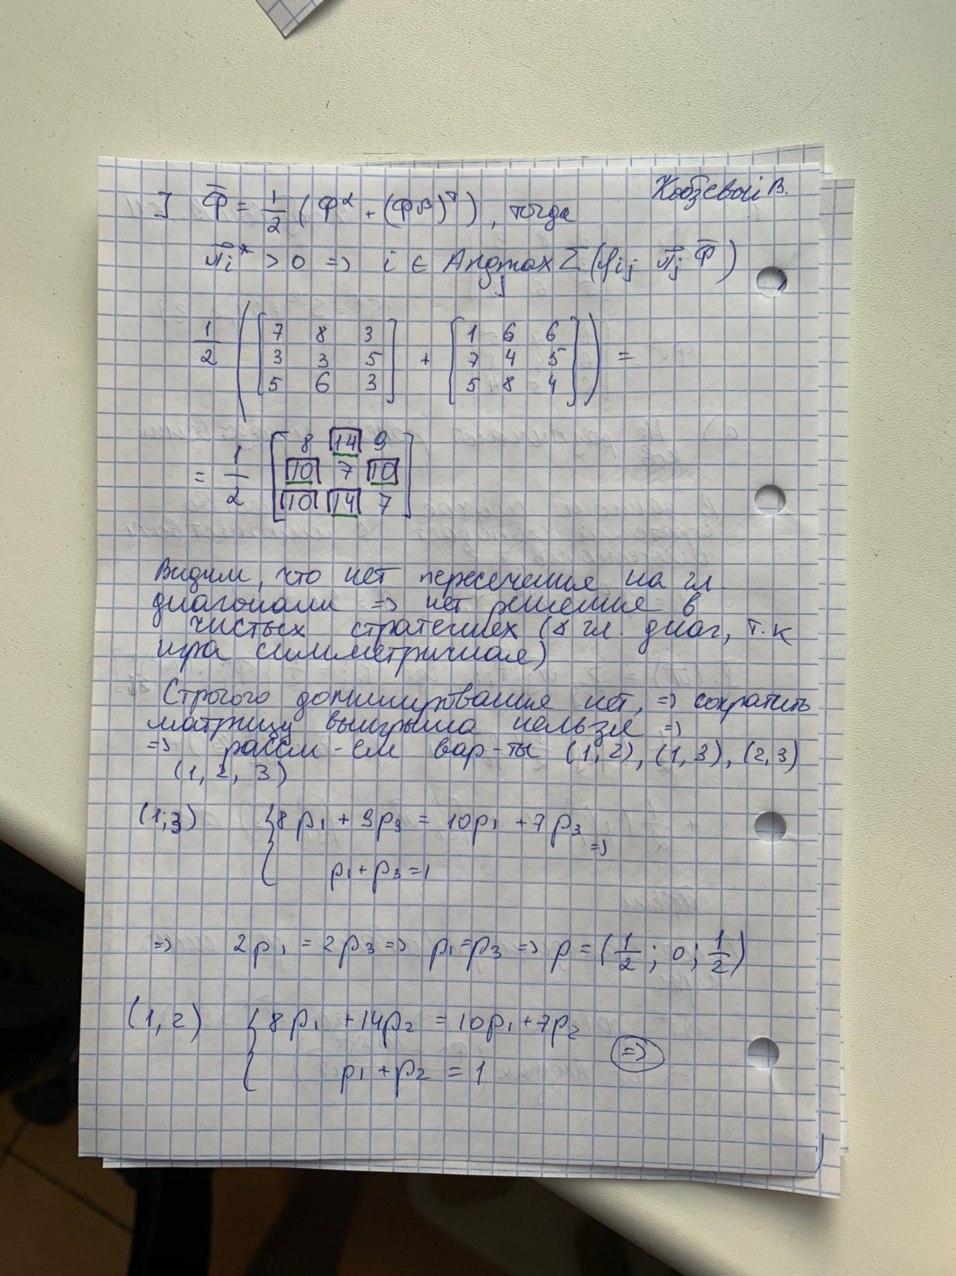 Кобзевой В.
I Φ̄ = 1/2 (Φ^α + (Φ^β)^T), тогда
π̄ᵢ* > 0 => i ∈ Argmax Σⱼ (φᵢⱼ π̄ⱼ Φ̄)
1/2 ( [ 7 8 3
3 3 5
5 6 3 ] + [ 1 6 6
7 4 5
5 8 4 ] ) =
= 1/2 [ 8 14 9
10 7 10
10 14 7 ]
Видим, что нет пересечения на гл.
диагонали => нет решения в
чистых стратегиях (в гл. диаг, т.к
игра симметричная)
Строгого доминирования нет, => сократить
матрицу выигрыша нельзя =>
=> рассм-ем вар-ты (1,2), (1,3), (2,3)
(1, 2, 3)
(1;3) { 8p₁ + 9p₃ = 10p₁ + 7p₃ =>
p₁ + p₃ = 1
=> 2p₁ = 2p₃ => p₁ = p₃ => p = (1/2; 0; 1/2)
(1,2) { 8p₁ + 14p₂ = 10p₁ + 7p₂ =>
p₁ + p₂ = 1